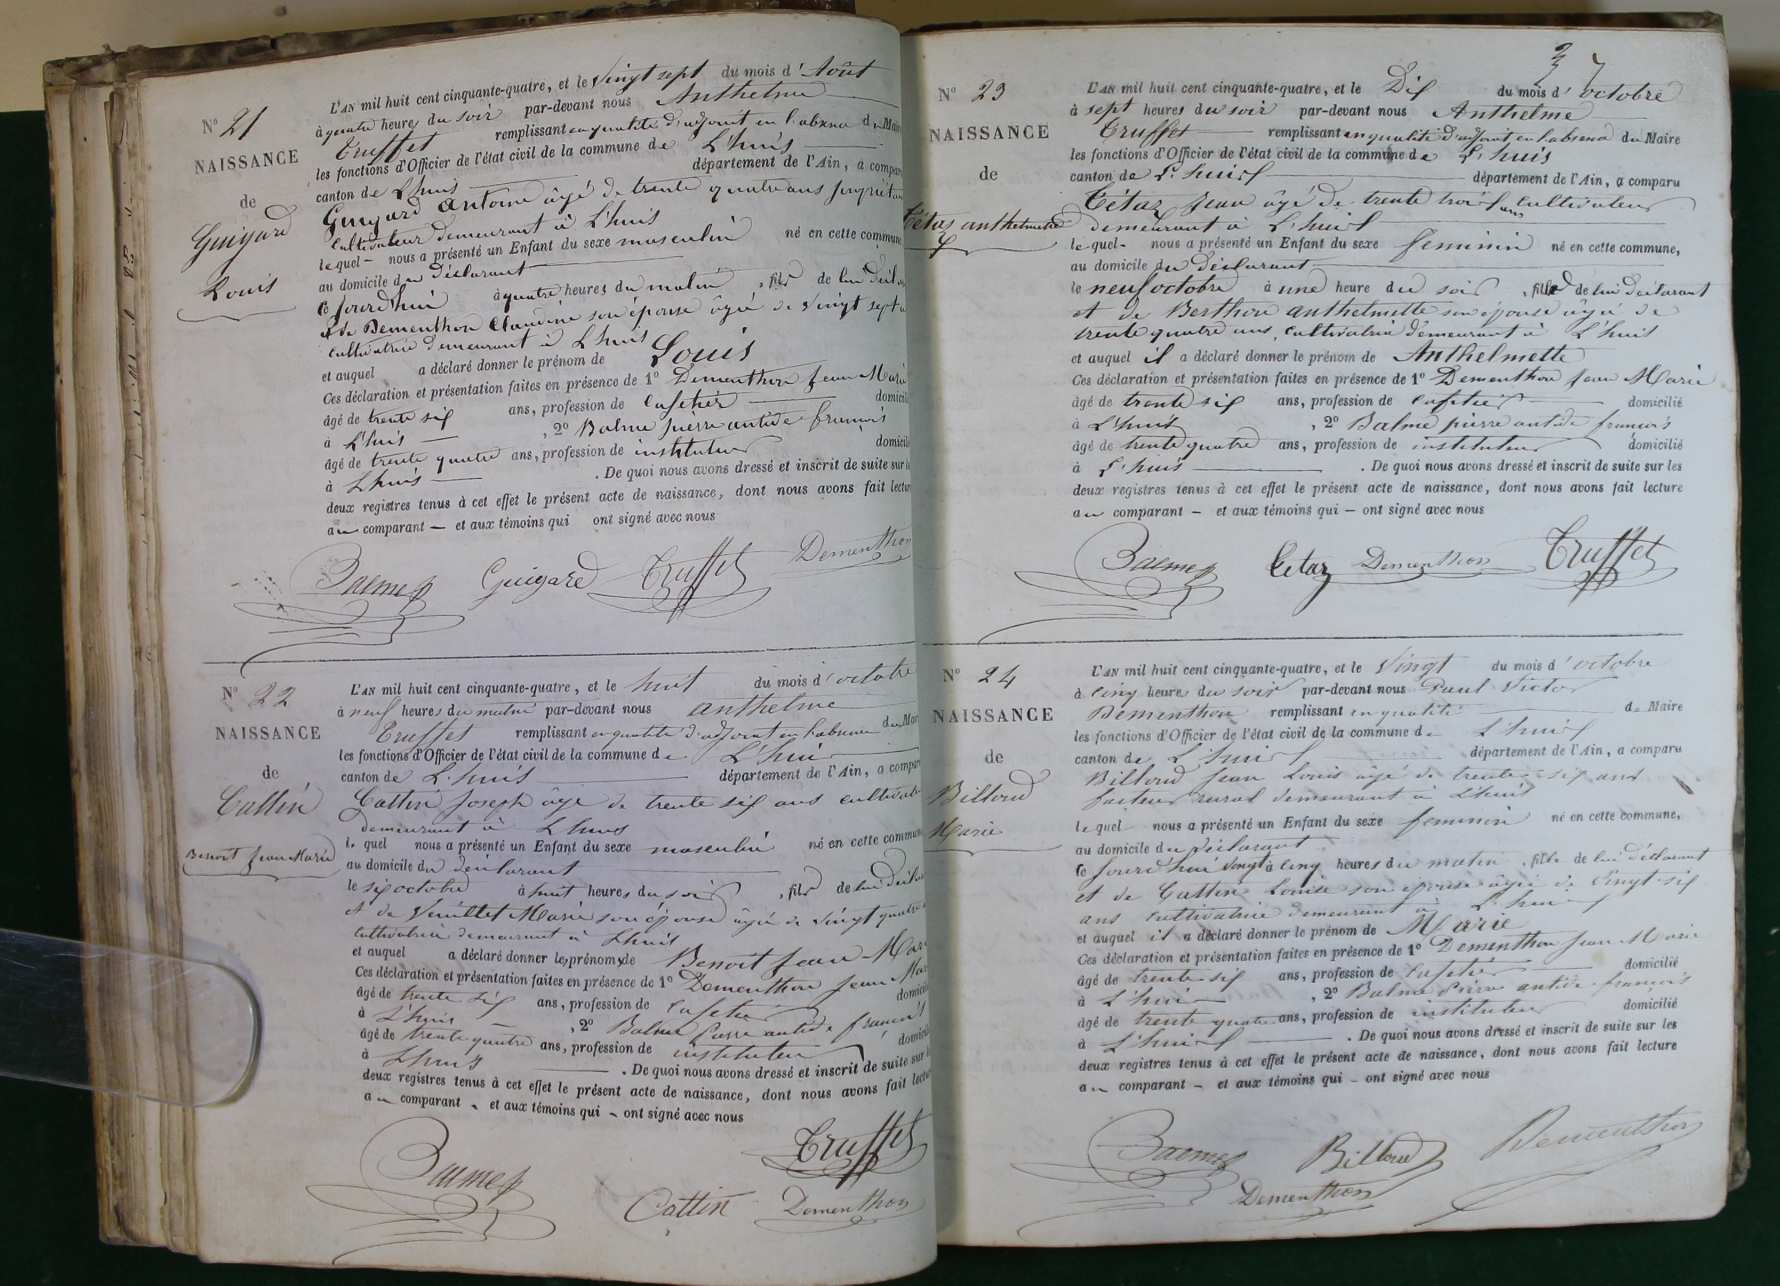 N° 21
NAISSANCE
de
Guigard
Louis
L'AN mil huit cent cinquante-quatre, et le Vingt sept du mois d'Août
à quatre heures du soir par-devant nous Anthelme
Truffet remplissant en qualité d'adjoint en l'absence du Maire
les fonctions d'Officier de l'état civil de la commune de L'huis
canton de L'huis département de l'Ain, a comparu
Guigard antoine âgé de trente quatre ans propriétaire
cultivateur demeurant à L'huis
lequel — nous a présenté un Enfant du sexe masculin né en cette commune,
au domicile du déclarant
ce jourd'hui à quatre heures du matin, fils de lui déclarant
et de Dementhon Claudine son épouse âgée de vingt sept
cultivatrice demeurant à L'huis
et auquel a déclaré donner le prénom de Louis
Ces déclaration et présentation faites en présence de 1° Dementhon Jean Marie
âgé de trente six ans, profession de cafetier domicilié
à L'huis —, 2° Balme pierre antide françois
âgé de trente quatre ans, profession de instituteur domicilié
à L'huis — . De quoi nous avons dressé et inscrit de suite sur les
deux registres tenus à cet effet le présent acte de naissance, dont nous avons fait lecture
au comparant — et aux témoins qui ont signé avec nous
Balme Guigard Truffet Dementhon
N° 22
NAISSANCE
de
Cattin
Benoit Jean Marie
L'AN mil huit cent cinquante-quatre, et le huit du mois d'octobre
à neuf heures du matin par-devant nous anthelme
Truffet remplissant en qualité d'adjoint en l'absence du Maire
les fonctions d'Officier de l'état civil de la commune de L'huis
canton de L'huis département de l'Ain, a comparu
Cattin Joseph âgé de trente six ans cultivateur
demeurant à L'huis
lequel nous a présenté un Enfant du sexe masculin né en cette commune
au domicile du déclarant
le six octobre à huit heures du soir, fils de lui déclarant
et de Veuillet Marie son épouse âgée de vingt quatre
cultivatrice demeurant à L'huis
et auquel a déclaré donner les prénoms de Benoit Jean Marie
Ces déclaration et présentation faites en présence de 1° Dementhon Jean Marie
âgé de trente six ans, profession de cafetier domicilié
à L'huis —, 2° Balme Pierre antide françois
âgé de trente quatre ans, profession de instituteur domicilié
à L'huis — . De quoi nous avons dressé et inscrit de suite sur les
deux registres tenus à cet effet le présent acte de naissance, dont nous avons fait lecture
au comparant — et aux témoins qui — ont signé avec nous
Balme Truffet
Cattin Dementhon
N° 23
NAISSANCE
de
Tétaz anthelmette
L'AN mil huit cent cinquante-quatre, et le Dix du mois d'octobre
à sept heures du soir par-devant nous Anthelme
Truffet remplissant en qualité d'adjoint en l'absence du Maire
les fonctions d'Officier de l'état civil de la commune de L'huis
canton de L'huis département de l'Ain, a comparu
Tétaz Jean âgé de trente trois ans cultivateur
demeurant à L'huis
lequel — nous a présenté un Enfant du sexe feminin né en cette commune,
au domicile du déclarant
le neuf octobre à une heure du soir, fille de lui déclarant
et de Berthon anthelmette son épouse âgée de
trente quatre ans, cultivatrice demeurant à L'huis
et auquel il a déclaré donner le prénom de Anthelmette
Ces déclaration et présentation faites en présence de 1° Dementhon Jean Marie
âgé de trente six ans, profession de cafetier domicilié
à L'huis, 2° Balme pierre antide françois
âgé de trente quatre ans, profession de instituteur domicilié
à L'huis — . De quoi nous avons dressé et inscrit de suite sur les
deux registres tenus à cet effet le présent acte de naissance, dont nous avons fait lecture
au comparant — et aux témoins qui — ont signé avec nous
Balme Tetaz Dementhon Truffet
N° 24
NAISSANCE
de
Billoud
Marie
L'AN mil huit cent cinquante-quatre, et le Vingt du mois d'octobre
à cinq heures du soir par-devant nous Paul Victor
Dementhon remplissant en qualité de Maire
les fonctions d'Officier de l'état civil de la commune de L'huis
canton de L'huis département de l'Ain, a comparu
Billoud Jean Louis âgé de trente-six ans
facteur rural demeurant à L'huis
lequel nous a présenté un Enfant du sexe feminin né en cette commune,
au domicile du déclarant
ce jourd'hui vingt à cinq heures du matin, fille de lui déclarant
et de Cattin Louise son épouse âgée de vingt-six
ans cultivatrice demeurant à L'huis
et auquel il a déclaré donner le prénom de Marie
Ces déclaration et présentation faites en présence de 1° Dementhon Jean Marie
âgé de trente-six ans, profession de cafetier domicilié
à L'huis, 2° Balme Pierre antide françois
âgé de trente quatre ans, profession de instituteur domicilié
à L'huis — . De quoi nous avons dressé et inscrit de suite sur les
deux registres tenus à cet effet le présent acte de naissance, dont nous avons fait lecture
au comparant — et aux témoins qui — ont signé avec nous
Balme Billoud Dementhon
Dementhon